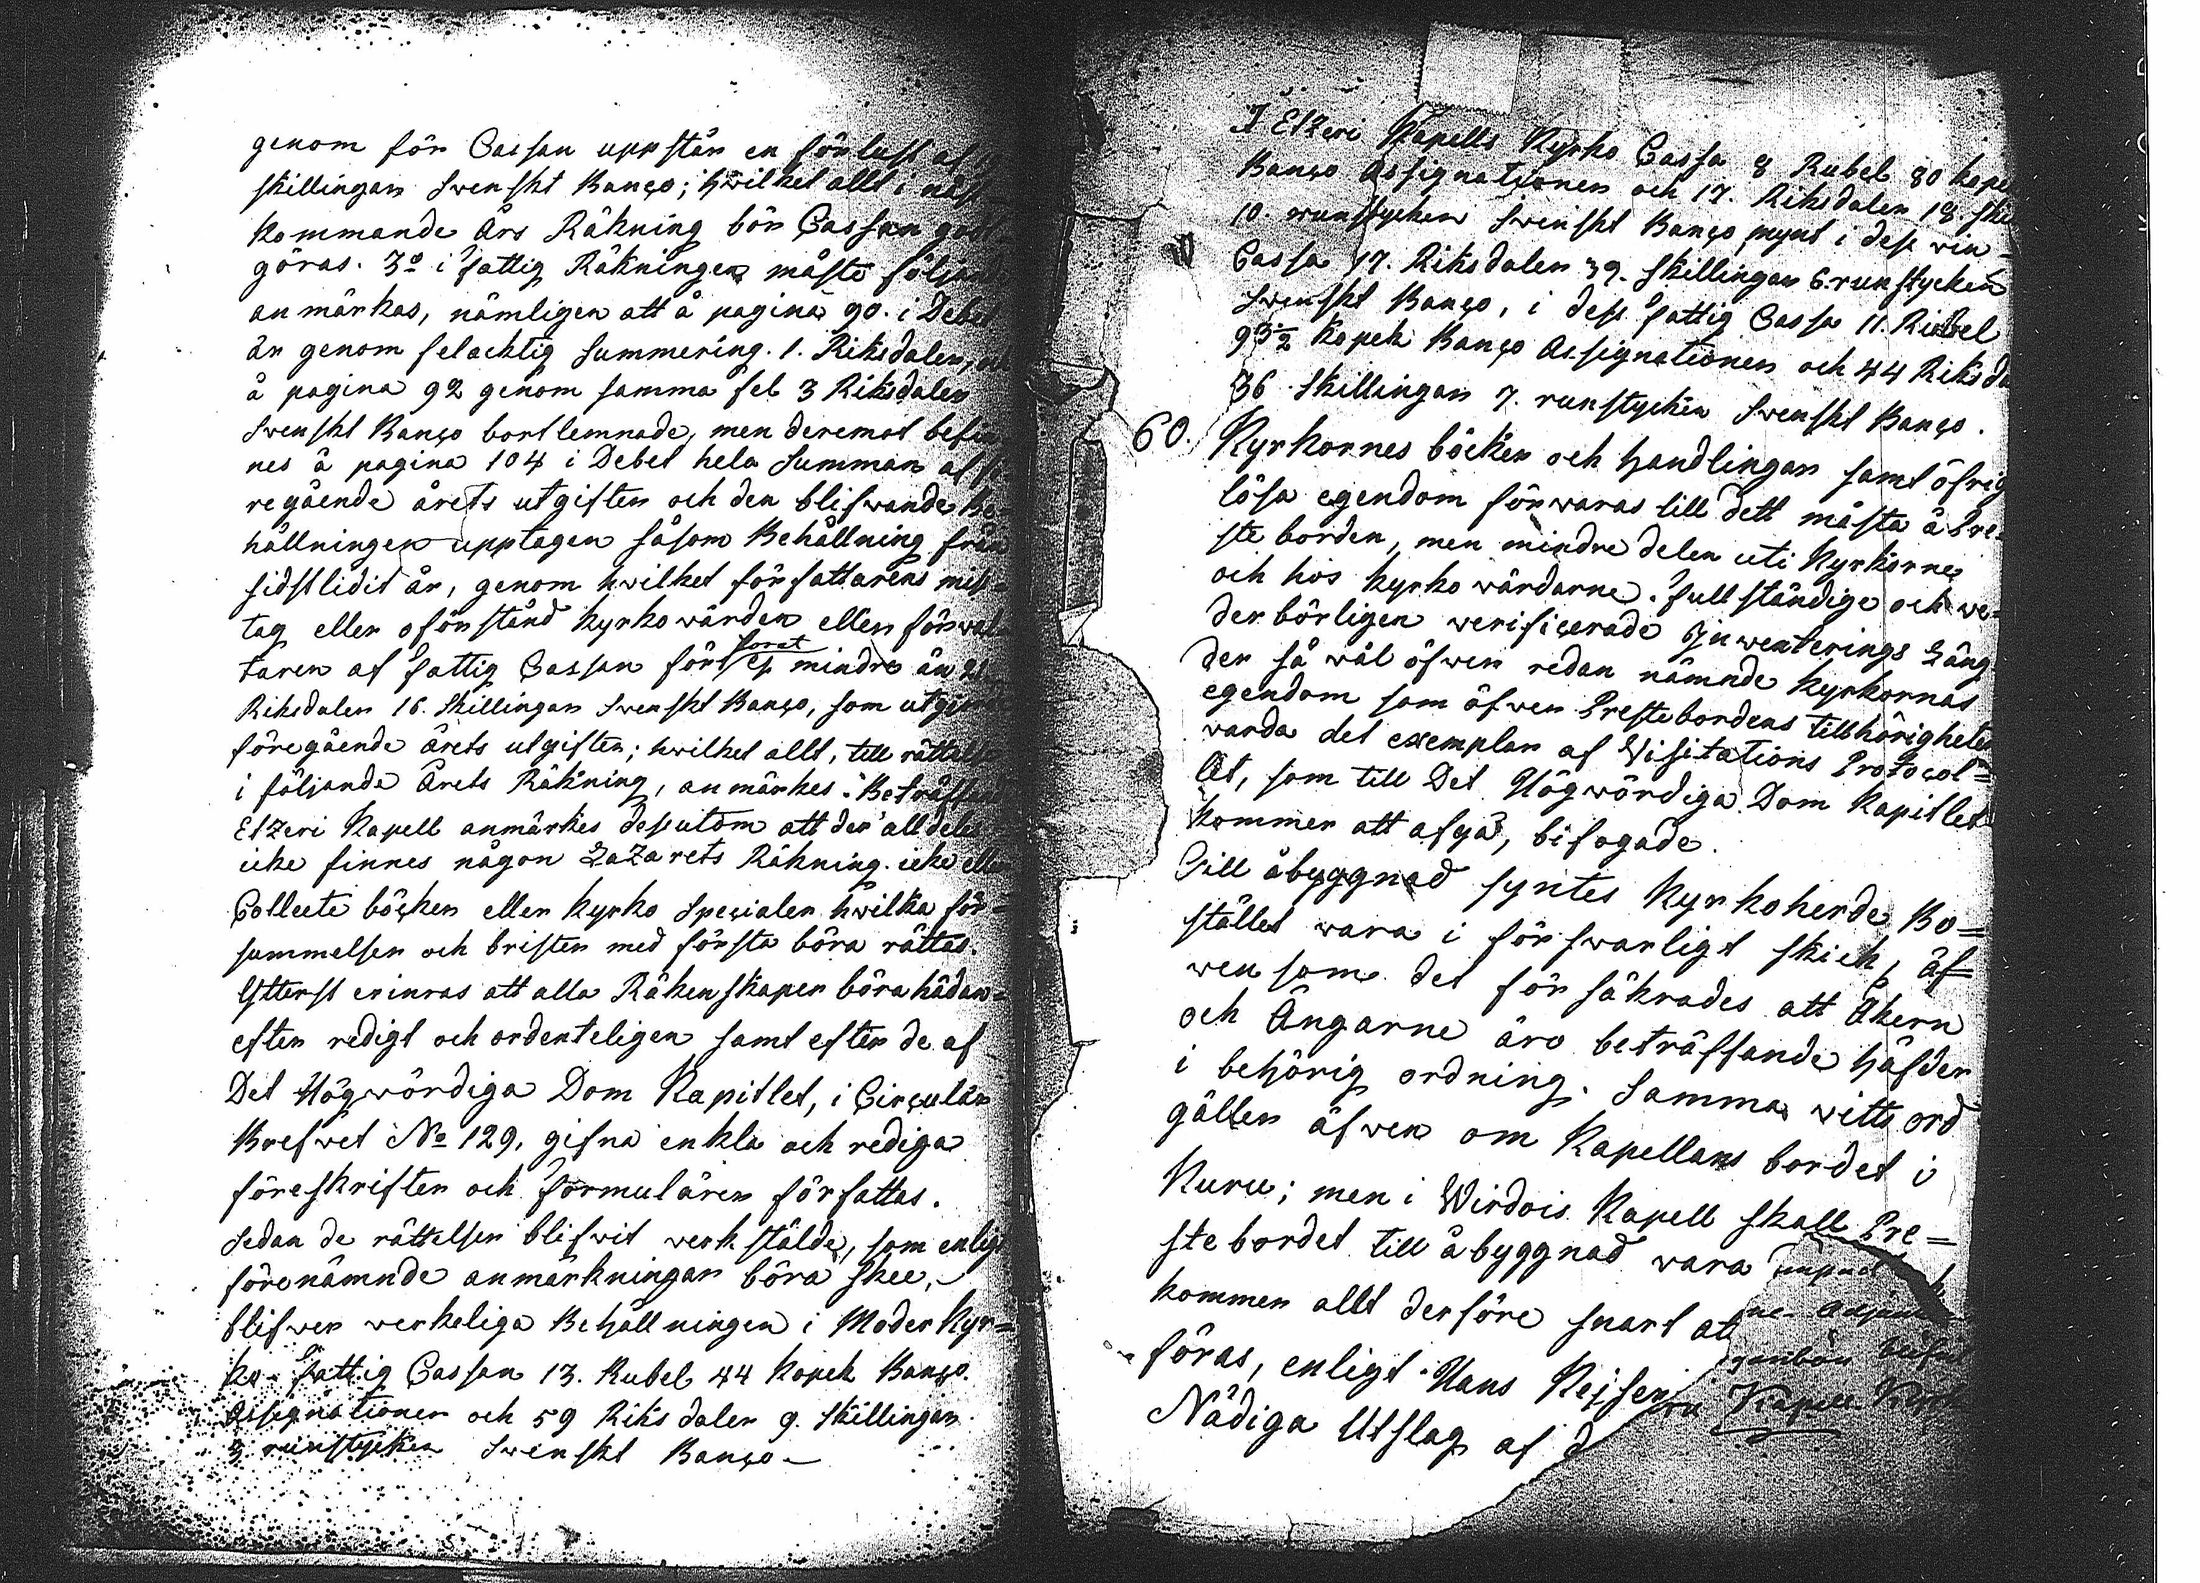 genom för Cassan uppstår en förlust af
skillingar Swenskt Banço; hwilket allt i näst
kommande Års Räkning bör Cassan godt
göras. 3o i fattig Räkningen måste följande
anmärkas, nämligen att å pagina 90. i Debet
är genom felacktig summering. 1. Riksdaler, och
å pagina 92 genom samma fel 3 Riksdaler
Swenskt Banço bortlemnade, men deremot befin
nes å pagina 104 i Debet hela Summan af fö
regående årets utgifter och den blifwande Be=
hållningen upptagen såsom Behållning från
sidstlidit år, genom hwilket författarens miss=
tag eller oförstånd Kyrkowärden eller förwal
taren af fattig Cassan förlorat ej mindre än 21
Riksdaler 16. Skillingar Swenskt Banço, som utgiöra
föregående årets utgifter; hwilket allt, till rättelse
i följande Årets Räkning, anmärkes. Beträffande
Etzeri Kapell anmärkes dessutom att der alldeles
icke finnes någon Lazarets Räkning. icke eller
Collecte böçker eller Kyrko Speçialer hwilka för=
summelser och brister med första böra rättas.
Ytterst erinras att alla Räkenskaper böra hädan=
efter redigt och ordenteligen samt efter de af
Det Högwördiga Dom Kapitlet, i Cirçulär
Brefwet No 129, gifna enkla och rediga
föreskrifter och formulärer författas.
Sedan de rättelser blifwit werkstälde, som enligt
förenämnde anmärkningar böra skee,
blifwer werkeliga Behållningen i Moder Kyr=
ko fattig Cassan 13. Rubel 44 Kopek Banço.
Assignationer och 59 Riksdaler 9. Skillingar.
3 runstycken Swenskt Banço

I Etzeri Kapells Kyrko Cassa 8 Rubel 80 kope
Banço Assignationer och 17. Riksdaler 18. Ski
10. runstycken Swenskt Banço mynt i dess win=
Cassa 17. Riksdaler 39. Skillingar 6 runstycken
Swenskt Banço, i dess fattig Cassa 11. Rubel
93½ Kopek Banço Assignationer och 44 Riksda
36 Skillingar 7. runstycken Swenskt Banço.
60. Kyrkornes böcker och handlingar samt öfrig
lösa egendom förwaras till dett mästa å Pre=
steborden, men mindre delen uti Kyrkorne
och hos Kyrkowärdarne. Fullständige och we=
derbörligen werifiçerade Inwenterings Läng
der så wäl öfwer redan nämnde Kyrkornas
egendom som öfwer Prestebordens tillhörigheter
warda det exemplar af Visitations Protoçol=
let, som till Det Högwördiga Dom Kapitlet
kommer att afgå, bifogade.
Till åbyggnad syntes Kyrkoherde Bo=
stället wara i förswarligt skick, äf=
wensom det försäkrades att Åkern
och Ängarne äro beträffande häfden
i behörig ordning. Samma witts ord
gäller äfwen om Kapellans bordet i
Kuru; men i Wirdois Kapell skall Pre=
stebordet till åbyggnad wara
kommer allt derföre snart at
föras, enligt Hans Kejser
Nådiga Utslag af d
Kapell